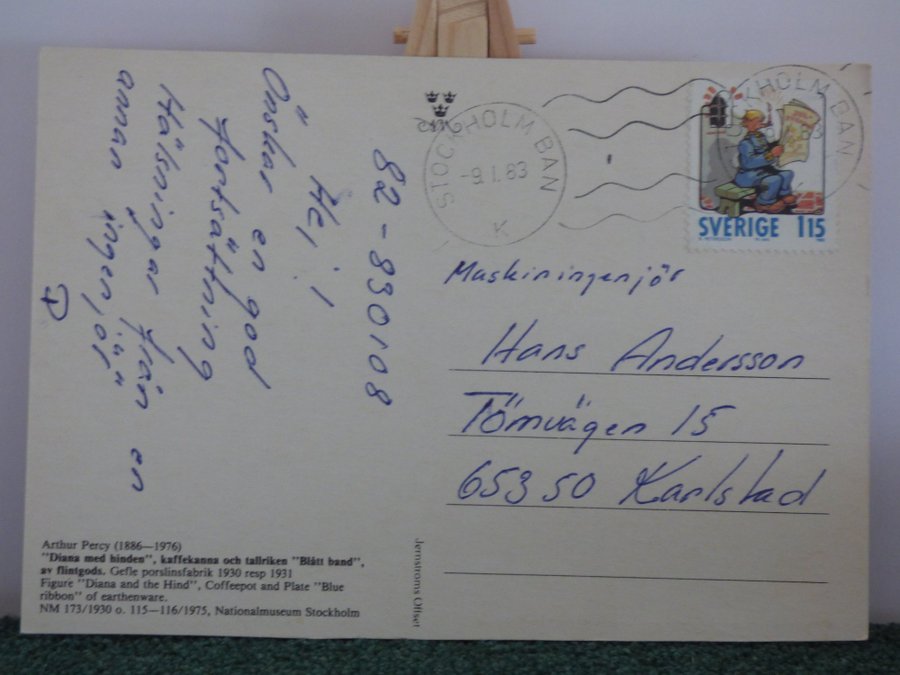 82-830108
Hej!
Önskar en god
fortsättning
Hälsningar från en
annan ingenjör
STOCKHOLM BAN
-9.1.83
K
STOCKHOLM BAN
SVERIGE 115
Maskiningenjör
Hans Andersson
Tömvägen 15
653 50 Karlstad
Arthur Percy (1886—1976)
"Diana med hinden", kaffekanna och tallriken "Blått band",
av flintgods. Gefle porslinsfabrik 1930 resp 1931
Figure "Diana and the Hind", Coffeepot and Plate "Blue
ribbon" of earthenware.
NM 173/1930 o. 115—116/1975, Nationalmuseum Stockholm
Jernströms Offset